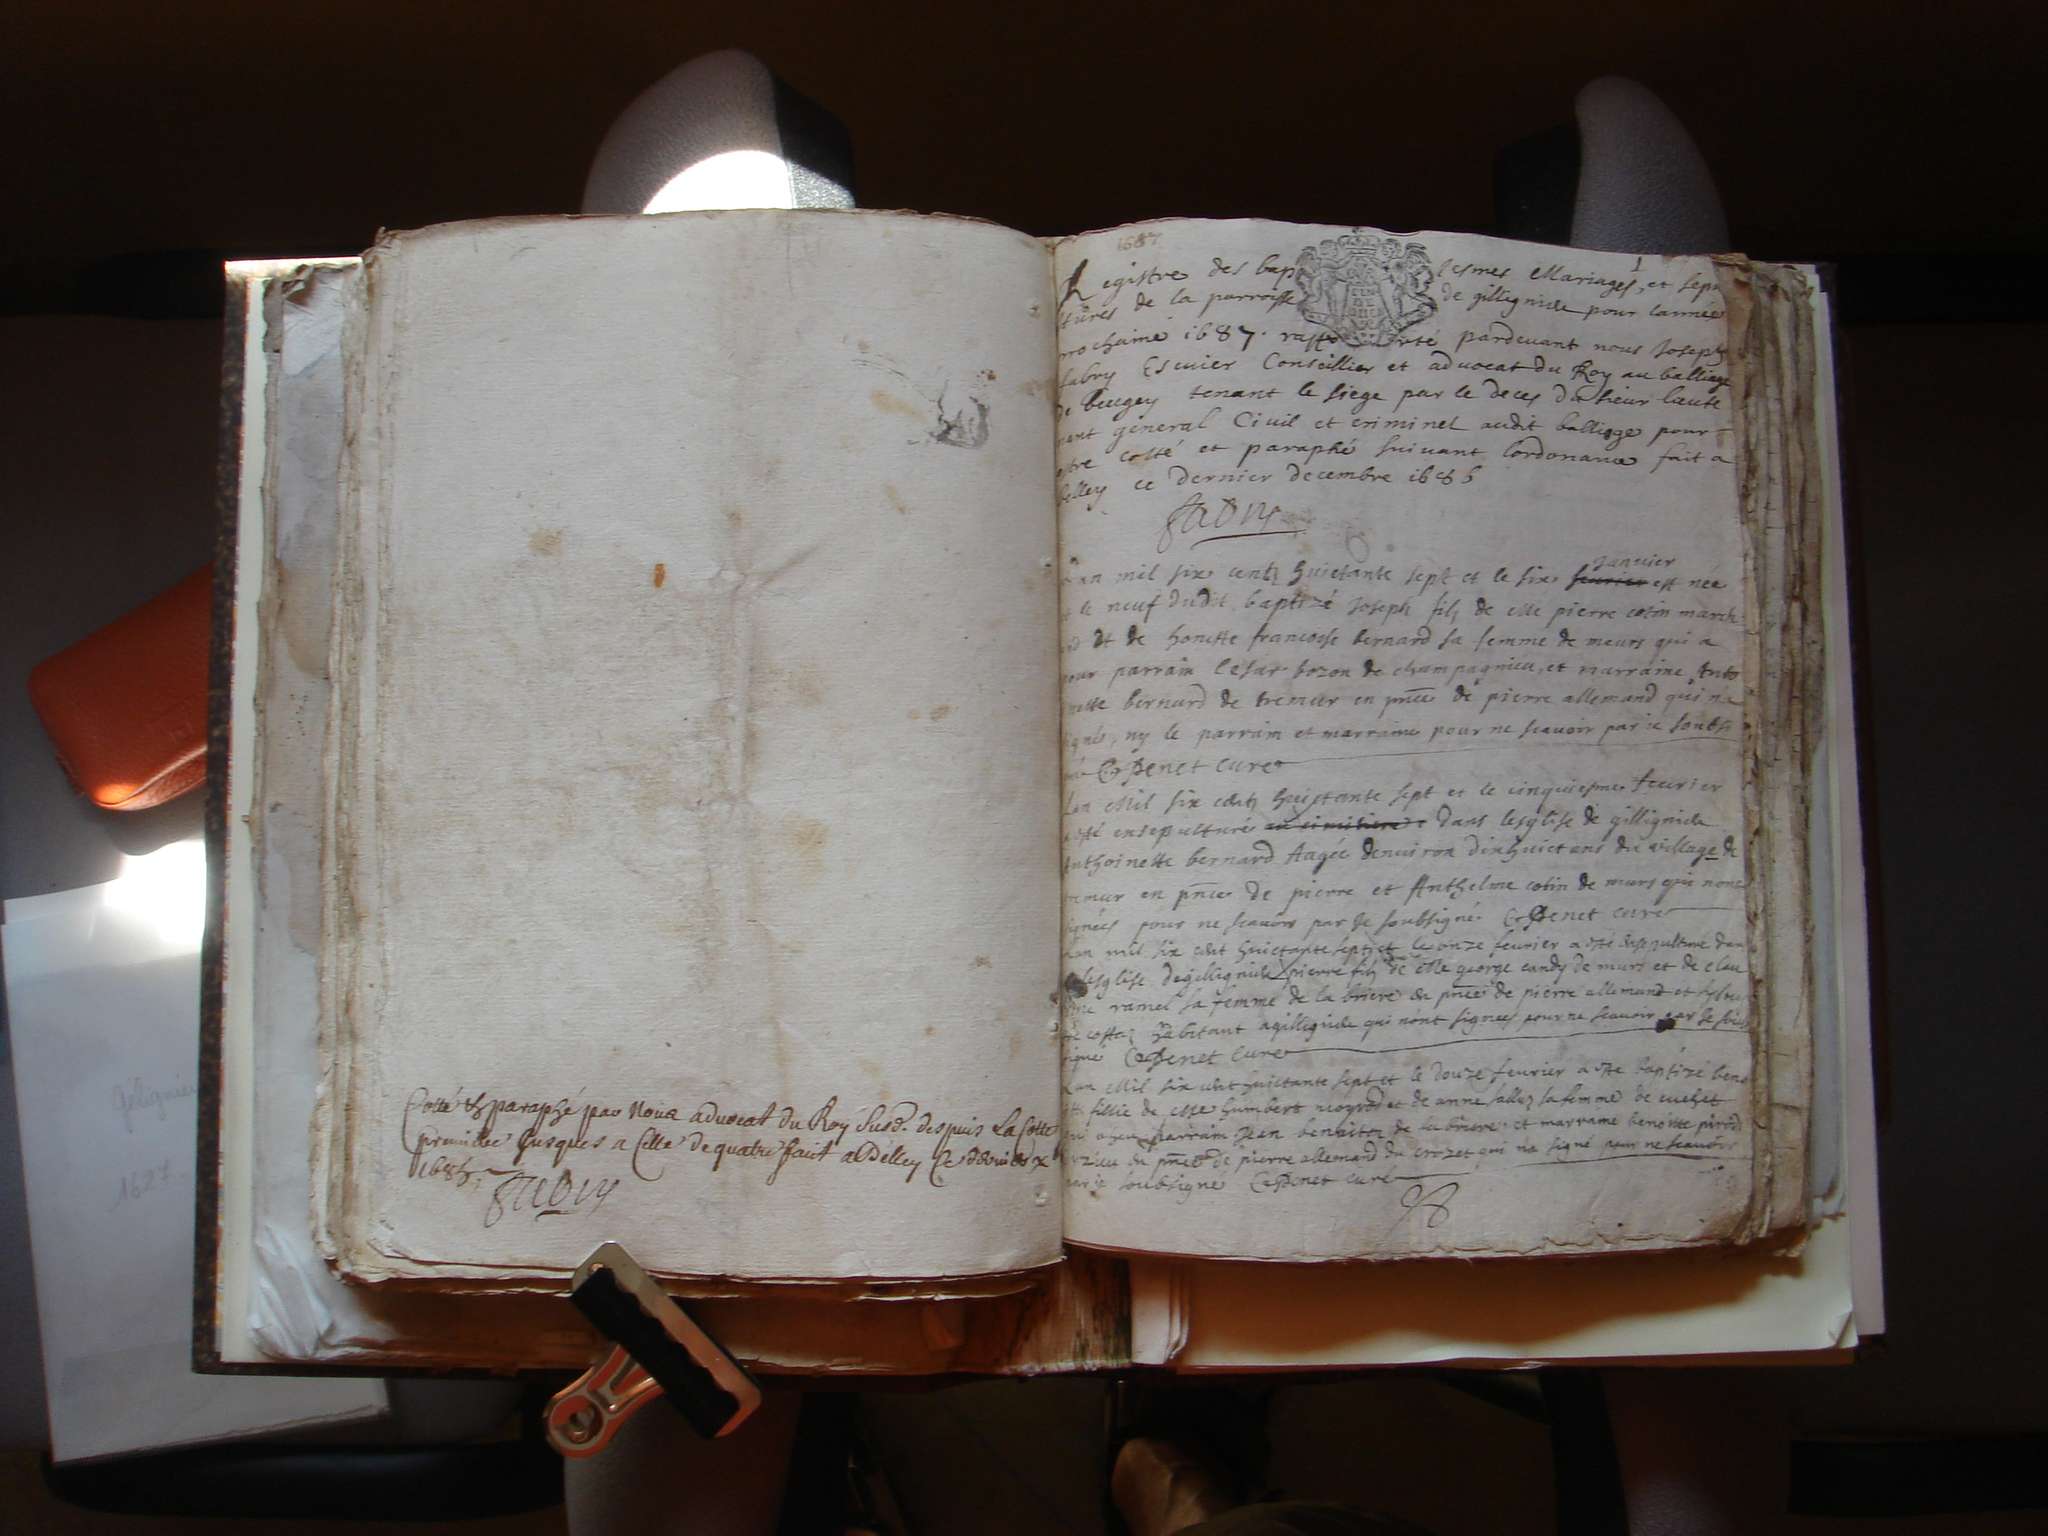 Cotté et paraphé par Nous advocat du Roy susd. despuis La Cotte
premiere jusques a Celle de quatre fait a Belley Ce dernier
1686
Fabry
1687
1
Registre des baptesmes Mariages, et sepu
tures de la parroisse de gillignieu pour lannee
prochaine 1687. rapporté pardevant nous Joseph
fabry Escuier Conseillier et advocat du Roy au balliage
de beugey tenant le siege par le deces du sieur lieute
nant general Civil et criminel audit balliage pour
estre cotté et paraphé suivant lordonance fait a
belley ce dernier decembre 1686
Fabry
Lan mil six centz huictante sept et le six fevrier janvier est née
et le neuf dudit baptizé Joseph filz de Me pierre cotin march
and et de honeste francoise bernard sa femme de meurs qui a
pour parrain Cesar bozon de champagnieu, et marraine Anto
nette bernard de tremur en pnce de pierre allemand qui na
signés, ny le parrain et marraine pour ne scavoir par je soubsi
gné C Penet cure
Lan Mil six cent huictante sept et le cinquiesme fevrier
a esté ensepulturé au cimitiere dans lesglise de gillignieu
Anthoinette bernard Aagée denviron dixhuict ans du village de
tremur en pnce de pierre et Anthelme cotin de murs qui nont
signées pour ne scavoir par je soubsigné C Penet cure
Lan mil six cent huictante sept et le onze fevrier a esté ensepulturé dan
lesglise de gillignieu pierre filz de Me george candy de murs et de clau
dine ramel sa femme de la briere en pnce de pierre allemand et
costaz habitant a gillignieu qui nont signees pour ne scavoir par je soub
signé C Penet cure
Lan Mil six cent huictante sept et le douze fevrier a esté baptizé beno
ite fillie de Me humbert moyrod et de anne sallaz sa femme de cuchet
qui a heu parrain Jean benoiton de la briere et marraine benoitte
en pnce de pierre allemand du crozet qui na signé pour ne scavoir
par je soubsigné C Penet curé
Gélignieu
1687